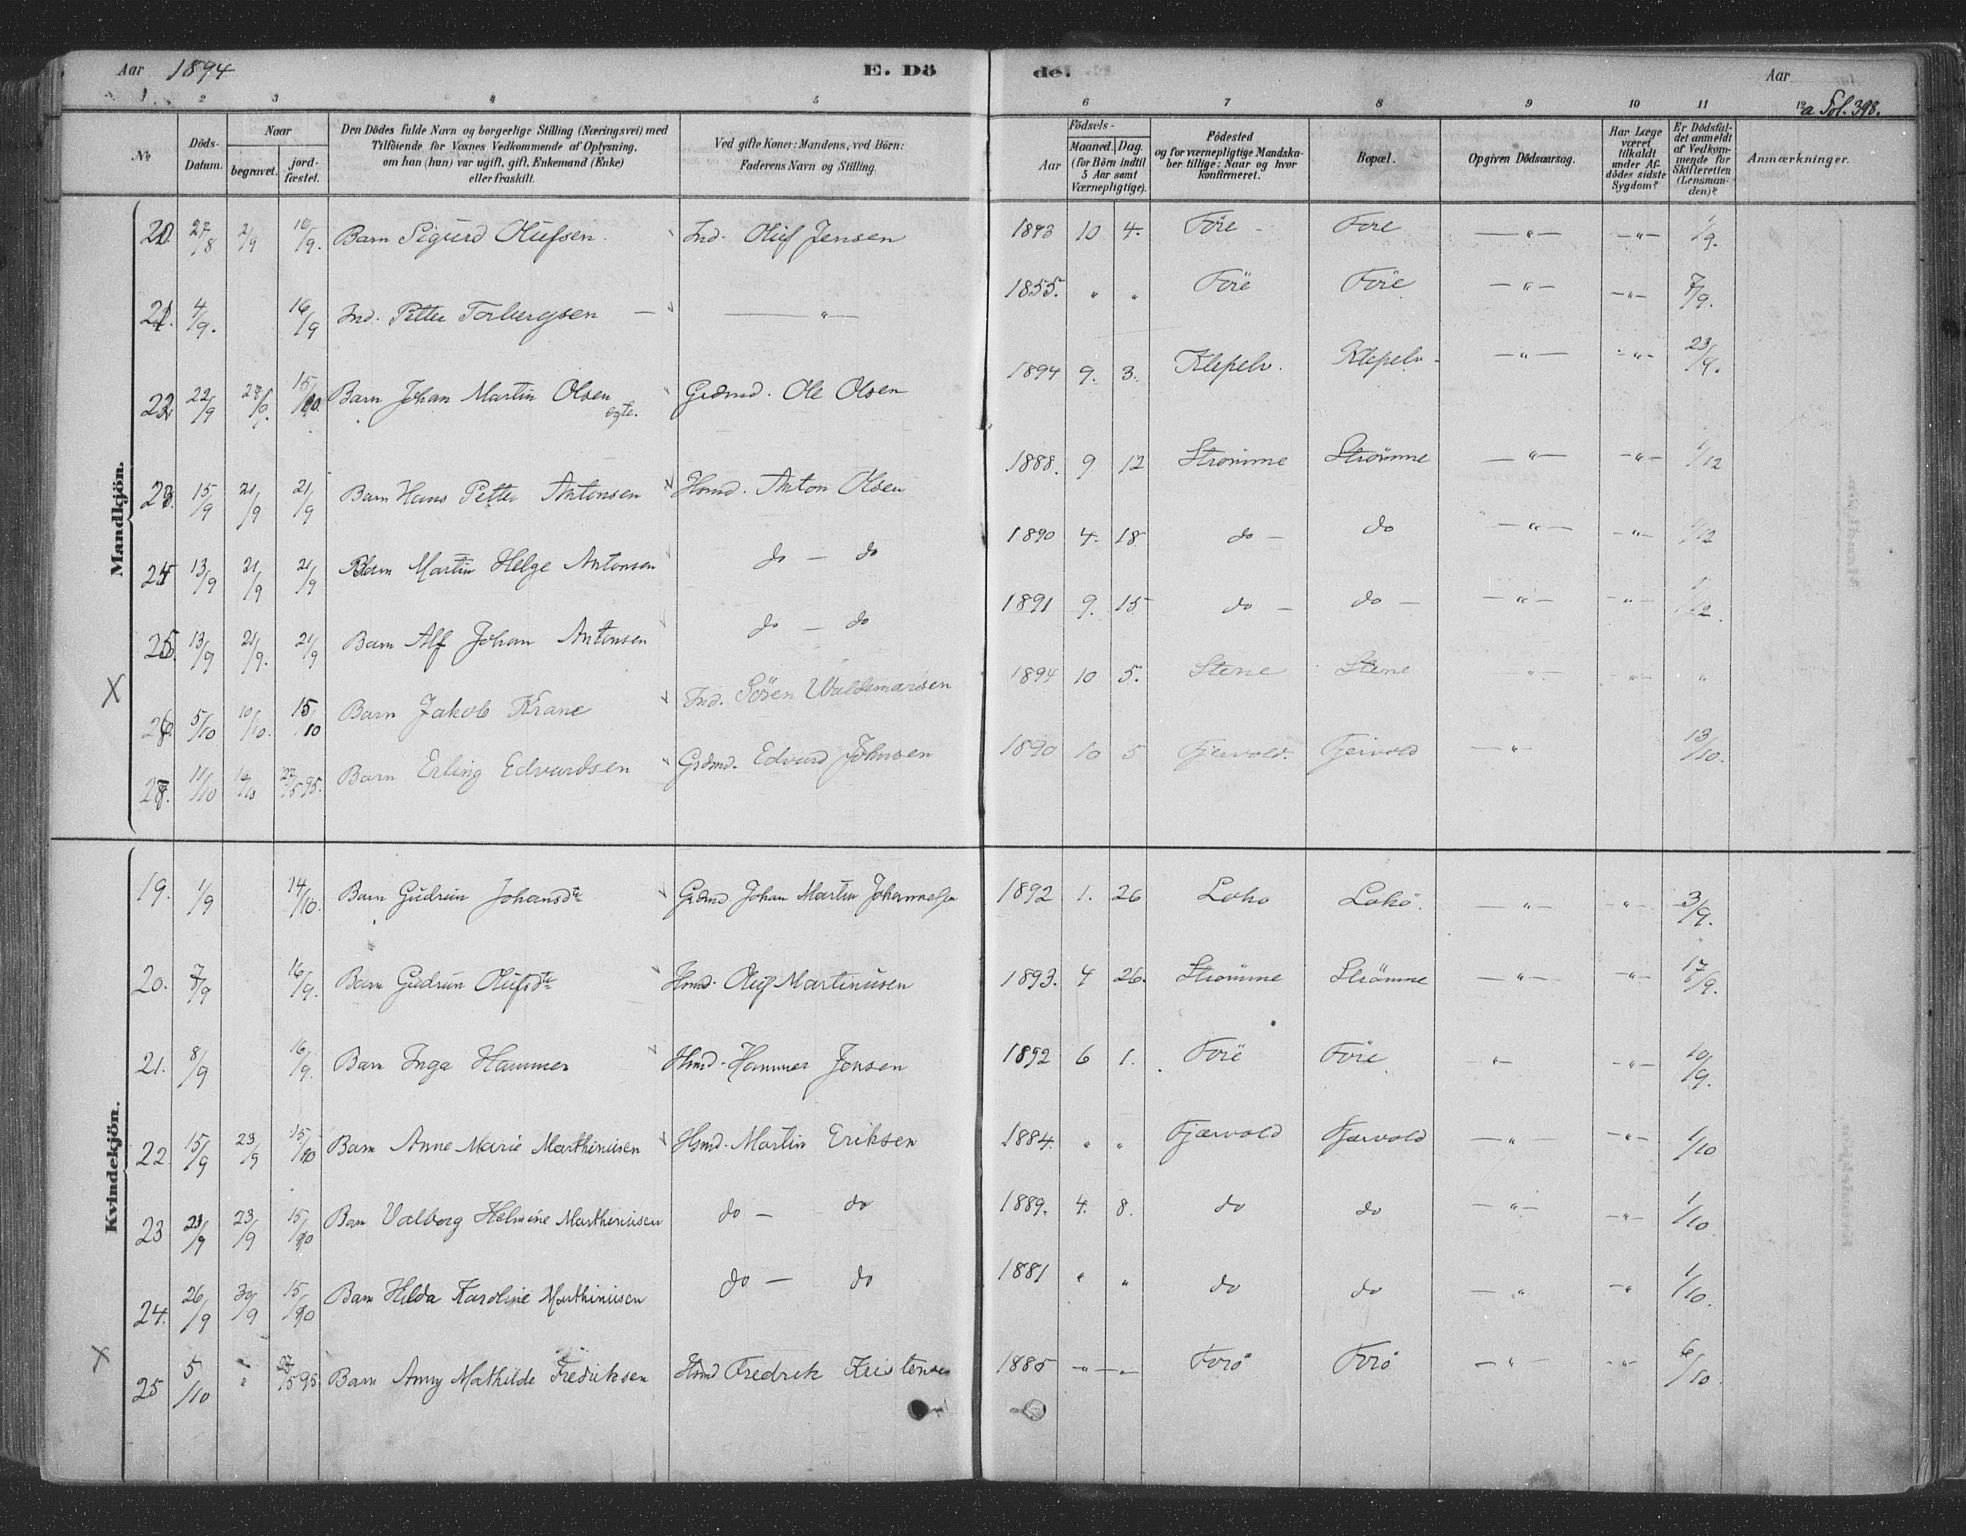 Aar 1894 E. Dö de. Aar
1. 2 3 4 5 6 7 8 9 10 11 12 a Fol. 398.
No
Döds-Datum.
Naar
begravet. jordfæstet.
Den Dödes fulde Navn og borgerlige Stilling (Næringsvei) med
Tilföiende for Voxnes Vedkommende af Oplysning,
om han (hun) var ugift, gift, Enkemand (Enke)
eller fraskilt.
Ved gifte Koner: Mandens, ved Börn:
Faderens Navn og Stilling.
Födsels-
Aar Maaned. Dag.
(for Börn indtil
5 Aar samt
Værnepligtige).
Födested
og for værnepligtige Mandskaber
tillige: Naar og hvor
konfirmeret.
Bopæl.
Opgiven Dödsaarsag.
Har Læge
været
tilkaldt
under Afdödes
sidste
Sygdom?
Er Dödsfaldet
anmeldt
af Vedkommende
for
Skifteretten
(Lensmanden)?
Anmærkninger.
Mandkjön.
20. 27/8 2/9 10/9. Barn Sigurd Olufsen. Ind. Oluf Jensen 1893 10 4. Före Fore — " — — " — 1/9.
21. 4/9. 16/9 Ind. Petter Torbergsen — — " — 1855. " " Före Före — " — — " — 7/9.
22. 22/9 15/10. Barn Johan Martin Olsen ægte. Grdmd. Ole Olsen 1894 9. 3. Klepelv. Klepelv — " — — " —
23. 15/9 21/9 21/9 Barn Hans Petter Antonsen Hsmd. Anton Olsen 1888. 9 12 Strömme Strömme — " — — " — 1/12
24 13/9 21/9 21/9 Barn Martin Helge Antonsen do — do 1890 4. 18 do — do — " — — " — 1/12
25. 13/9 21/9. 21/9 Barn Alf Johan Antonsen do — do 1891 9. 15 do — do — — " — — " — 1/12.
X 26. 5/10 10/10. 15/10 Barn Jakob Krane Ind. Sören Waldemarsen 1894 10 5. Stene Stene — " — — " — "
27. 11/10 16/10 27/5 95. Barn Erling Edvardsen Grdmd. Edvard Johnsen 1890 10 5 Fjærvold. Fjærvold — " — 13/10.
Kvindekjön.
19. 1/9 14/10. Barn Gudrun Johansdtr Grdmd Johan Martin Johannessen 1892 1. 26 Lohö Lohö. — " — — " — 3/9.
20. 7/9 16/9. Barn Gudrun Olufsdtr Hsmd. Oluf Martinusen 1893. 4 26. Strömme Strömme — " — — " — 17/9.
21. 8/9 16/9. Barn Inga Hammer Hsmd. Hammer Jensen 1892 6 1. Före Före — " — — " — 10/9.
22. 15/9 23/9 15/10 Barn Anne Marie Marthinusen Hsmd. Martin Eriksen 1884. " " Fjærvold Fjærvold — " — — " — 1/10
23 21/9 23/9 15/10 Barn Valborg Helmine Marthinusen do — do 1889. 4. 8. do do — " — — " — 1/10
24. 26/9 30/9 15/10 Barn Hilda Karoline Marthinusen do — do 1881 " " do do — " — — " — 1/10.
X 25. 5/10 " 27/5 95. Barn Anny Mathilde Fredriksen Hsmd Fredrik Kristensen 1885 — " — Forö Forö — " — — " — 6/10.